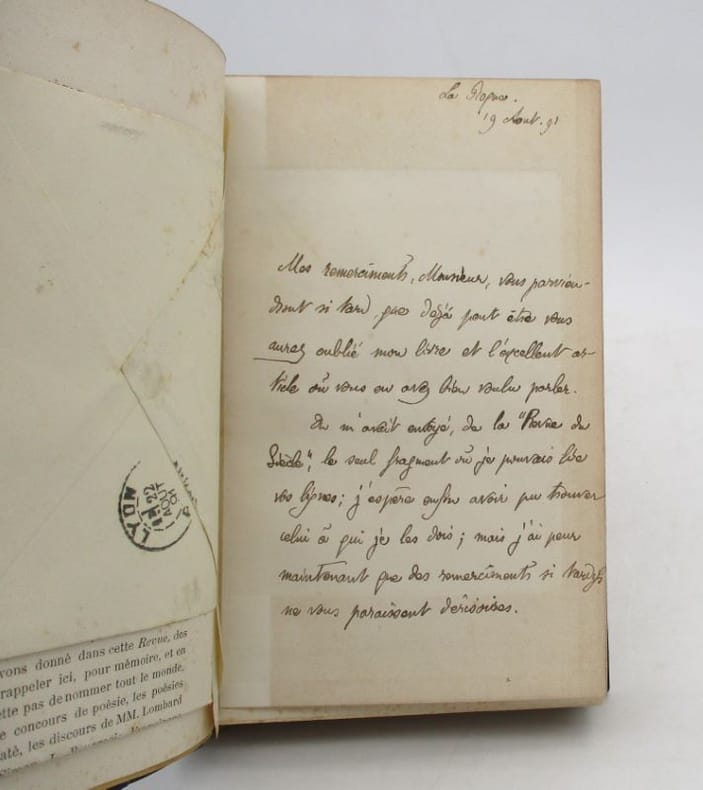 La Roque.
19 Aout. 91
Mes remerciments, Monsieur, vous parvien-
dront si tard, que déjà peut être vous
aurez oublié mon livre et l'excellent ar-
ticle où vous en avez bien voulu parler.
On m'avait envoyé, de la "Revue du
Siècle", le seul fragment où je pouvais lire
vos lignes; j'espère enfin avoir pu trouver
celui à qui je les dois; mais j'ai peur
maintenant que des remerciments si tardifs
ne vous paraissent dérisoires.
LYON
22
AOUT
91
vons donné dans cette Revue, des
rappeler ici, pour mémoire, et en
ette pas de nommer tout le monde.
e concours de poésie, les poésies
atè, les discours de MM. Lombard